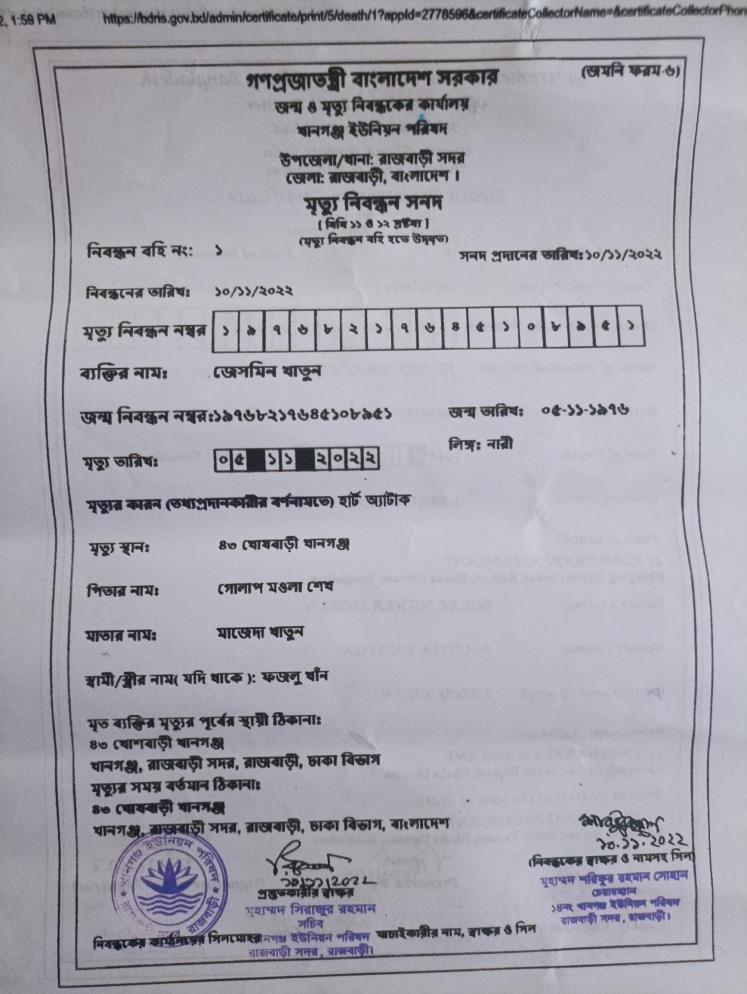 2, 1:59 PM https://bdris.gov.bd/admin/certificate/print/5/death/1?appId=2778596&certificateCollectorName=&certificateCollectorPhon
(জমনি ফরম-৬)
গণপ্রজাতন্ত্রী বাংলাদেশ সরকার
জন্ম ও মৃত্যু নিবন্ধকের কার্যালয়
খানগঞ্জ ইউনিয়ন পরিষদ
উপজেলা/থানা: রাজবাড়ী সদর
জেলা: রাজবাড়ী, বাংলাদেশ ।
মৃত্যু নিবন্ধন সনদ
[ বিধি ১১ ও ১২ দ্রষ্টব্য ]
(মৃত্যু নিবন্ধন বহি হতে উদ্ধৃত)
নিবন্ধন বহি নং: ১ সনদ প্রদানের তারিখ:১০/১১/২০২২
নিবন্ধনের তারিখ: ১০/১১/২০২২
মৃত্যু নিবন্ধন নম্বর ১ ৯ ৭ ৬ ৮ ২ ১ ৭ ৬ ৪ ৫ ১ ০ ৮ ৯ ৫ ১
ব্যক্তির নাম: জেসমিন খাতুন
জন্ম নিবন্ধন নম্বর:১৯৭৬৮২১৭৬৪৫১০৮৯৫১ জন্ম তারিখ: ০৫-১১-১৯৭৬
মৃত্যু তারিখ: ০৫ ১১ ২০২২ লিঙ্গ: নারী
মৃত্যুর কারন (তথ্যপ্রদানকারীর বর্ণনামতে) হার্ট অ্যাটাক
মৃত্যু স্থান: ৪৩ খোষবাড়ী খানগঞ্জ
পিতার নাম: গোলাপ মওলা শেখ
মাতার নাম: মাজেদা খাতুন
স্বামী/স্ত্রীর নাম( যদি থাকে ): ফজলু খাঁন
মৃত ব্যক্তির মৃত্যুর পূর্বের স্থায়ী ঠিকানা:
৪৩ খোশবাড়ী খানগঞ্জ
খানগঞ্জ, রাজবাড়ী সদর, রাজবাড়ী, ঢাকা বিভাগ
মৃত্যুর সময় বর্তমান ঠিকানা:
৪৩ খোষবাড়ী খানগঞ্জ
খানগঞ্জ, রাজবাড়ী সদর, রাজবাড়ী, ঢাকা বিভাগ, বাংলাদেশ
১০.১১.২০২২
(নিবন্ধকের স্বাক্ষর ও নামসহ সিল)
১০/১১/২০২২
প্রস্তুতকারীর স্বাক্ষর
মুহাম্মদ শরিফুর রহমান সোহান
চেয়ারম্যান
১৪নং খানগঞ্জ ইউনিয়ন পরিষদ
রাজবাড়ী সদর, রাজবাড়ী।
খানগঞ্জ ইউনিয়ন পরিষদ
রাজবাড়ী সদর, রাজবাড়ী
মুহাম্মদ সিরাজুর রহমান
সচিব
নিবন্ধকের কার্যালয়ের সিলমোহর খানগঞ্জ ইউনিয়ন পরিষদ যাচাইকারীর নাম, স্বাক্ষর ও সিল
রাজবাড়ী সদর, রাজবাড়ী।